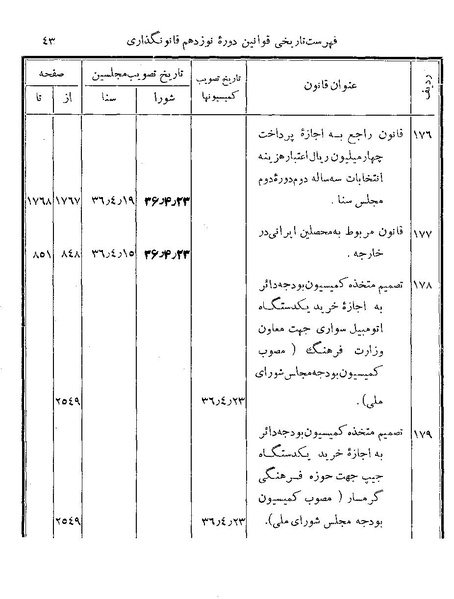 فهرست تاریخی قوانین دورهٔ نوزدهم قانونگذاری
۴۳
ردیف
عنوان قانون
تاریخ تصویب کمیسیونها
تاریخ تصویب مجلسین
شورا
سنا
صفحه
از
تا
۱۷۶
قانون راجع به اجازهٔ پرداخت
چهارمیلیون ریال اعتبار هزینه
انتخابات سه ساله دوم دورهٔ دوم
مجلس سنا .
۳۶٫۴٫۲۳
۳۶٫۴٫۱۹
۱۷۶۷
۱۷۶۸
۱۷۷
قانون مربوط به محصلین ایرانی در
خارجه .
۳۶٫۴٫۲۳
۳۶٫۴٫۱۵
۸۴۸
۸۵۱
۱۷۸
تصمیم متخذه کمیسیون بودجه دائر
به اجازهٔ خرید یکدستگاه
اتومبیل سواری جهت معاون
وزارت فرهنگ ( مصوب
کمیسیون بودجه مجلس شورای
ملی) .
۳۶٫۴٫۲۳
۲۵۴۹
۱۷۹
تصمیم متخذه کمیسیون بودجه دائر
به اجازهٔ خرید یکدستگاه
جیپ جهت حوزه فرهنگی
گرمسار ( مصوب کمیسیون
بودجه مجلس شورای ملی).
۳۶٫۴٫۲۳
۲۵۴۹